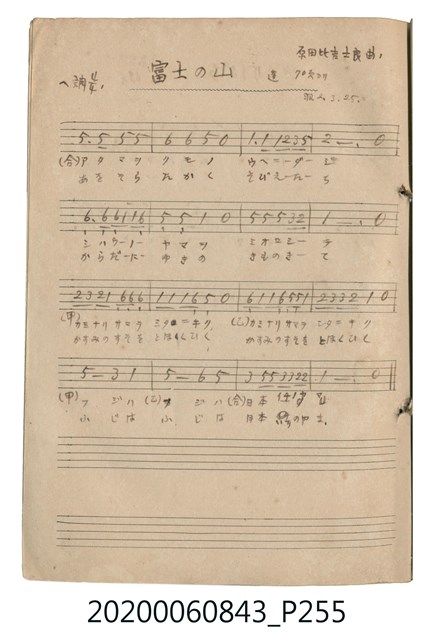 富士の山
5. 5 5 5 | 6 6 5 0 | 1. 1 1 2 3 5 | 2 — . 0
(合)アタマヲ クモノ ウヘニーダーシ
あをぞら たかく そびえーたーち
6. 6 6 1 1 6 | 5 5 1 0 | 5 5 5 3 2 | 1 — . 0
からだーに ゆきの きものきーて
2 3 2 1 6 6 6 | 1 1 1 6 5 0 | 6 1 1 6 5 5 1 | 2 3 3 2 1 0
(甲)カミナリサマヲ シタニキク (乙)カミナリサマヲ シタニキク
かすみのすそを とほくひく かすみのすそを とほくひく
5 — 3 1 | 5 — 6 5 | 3 5 5 3 3 2 2 | 1 — . 0
(甲)フジハ (乙)フジハ (合)日本
ふじは ふじは 日本
20200060843_P255